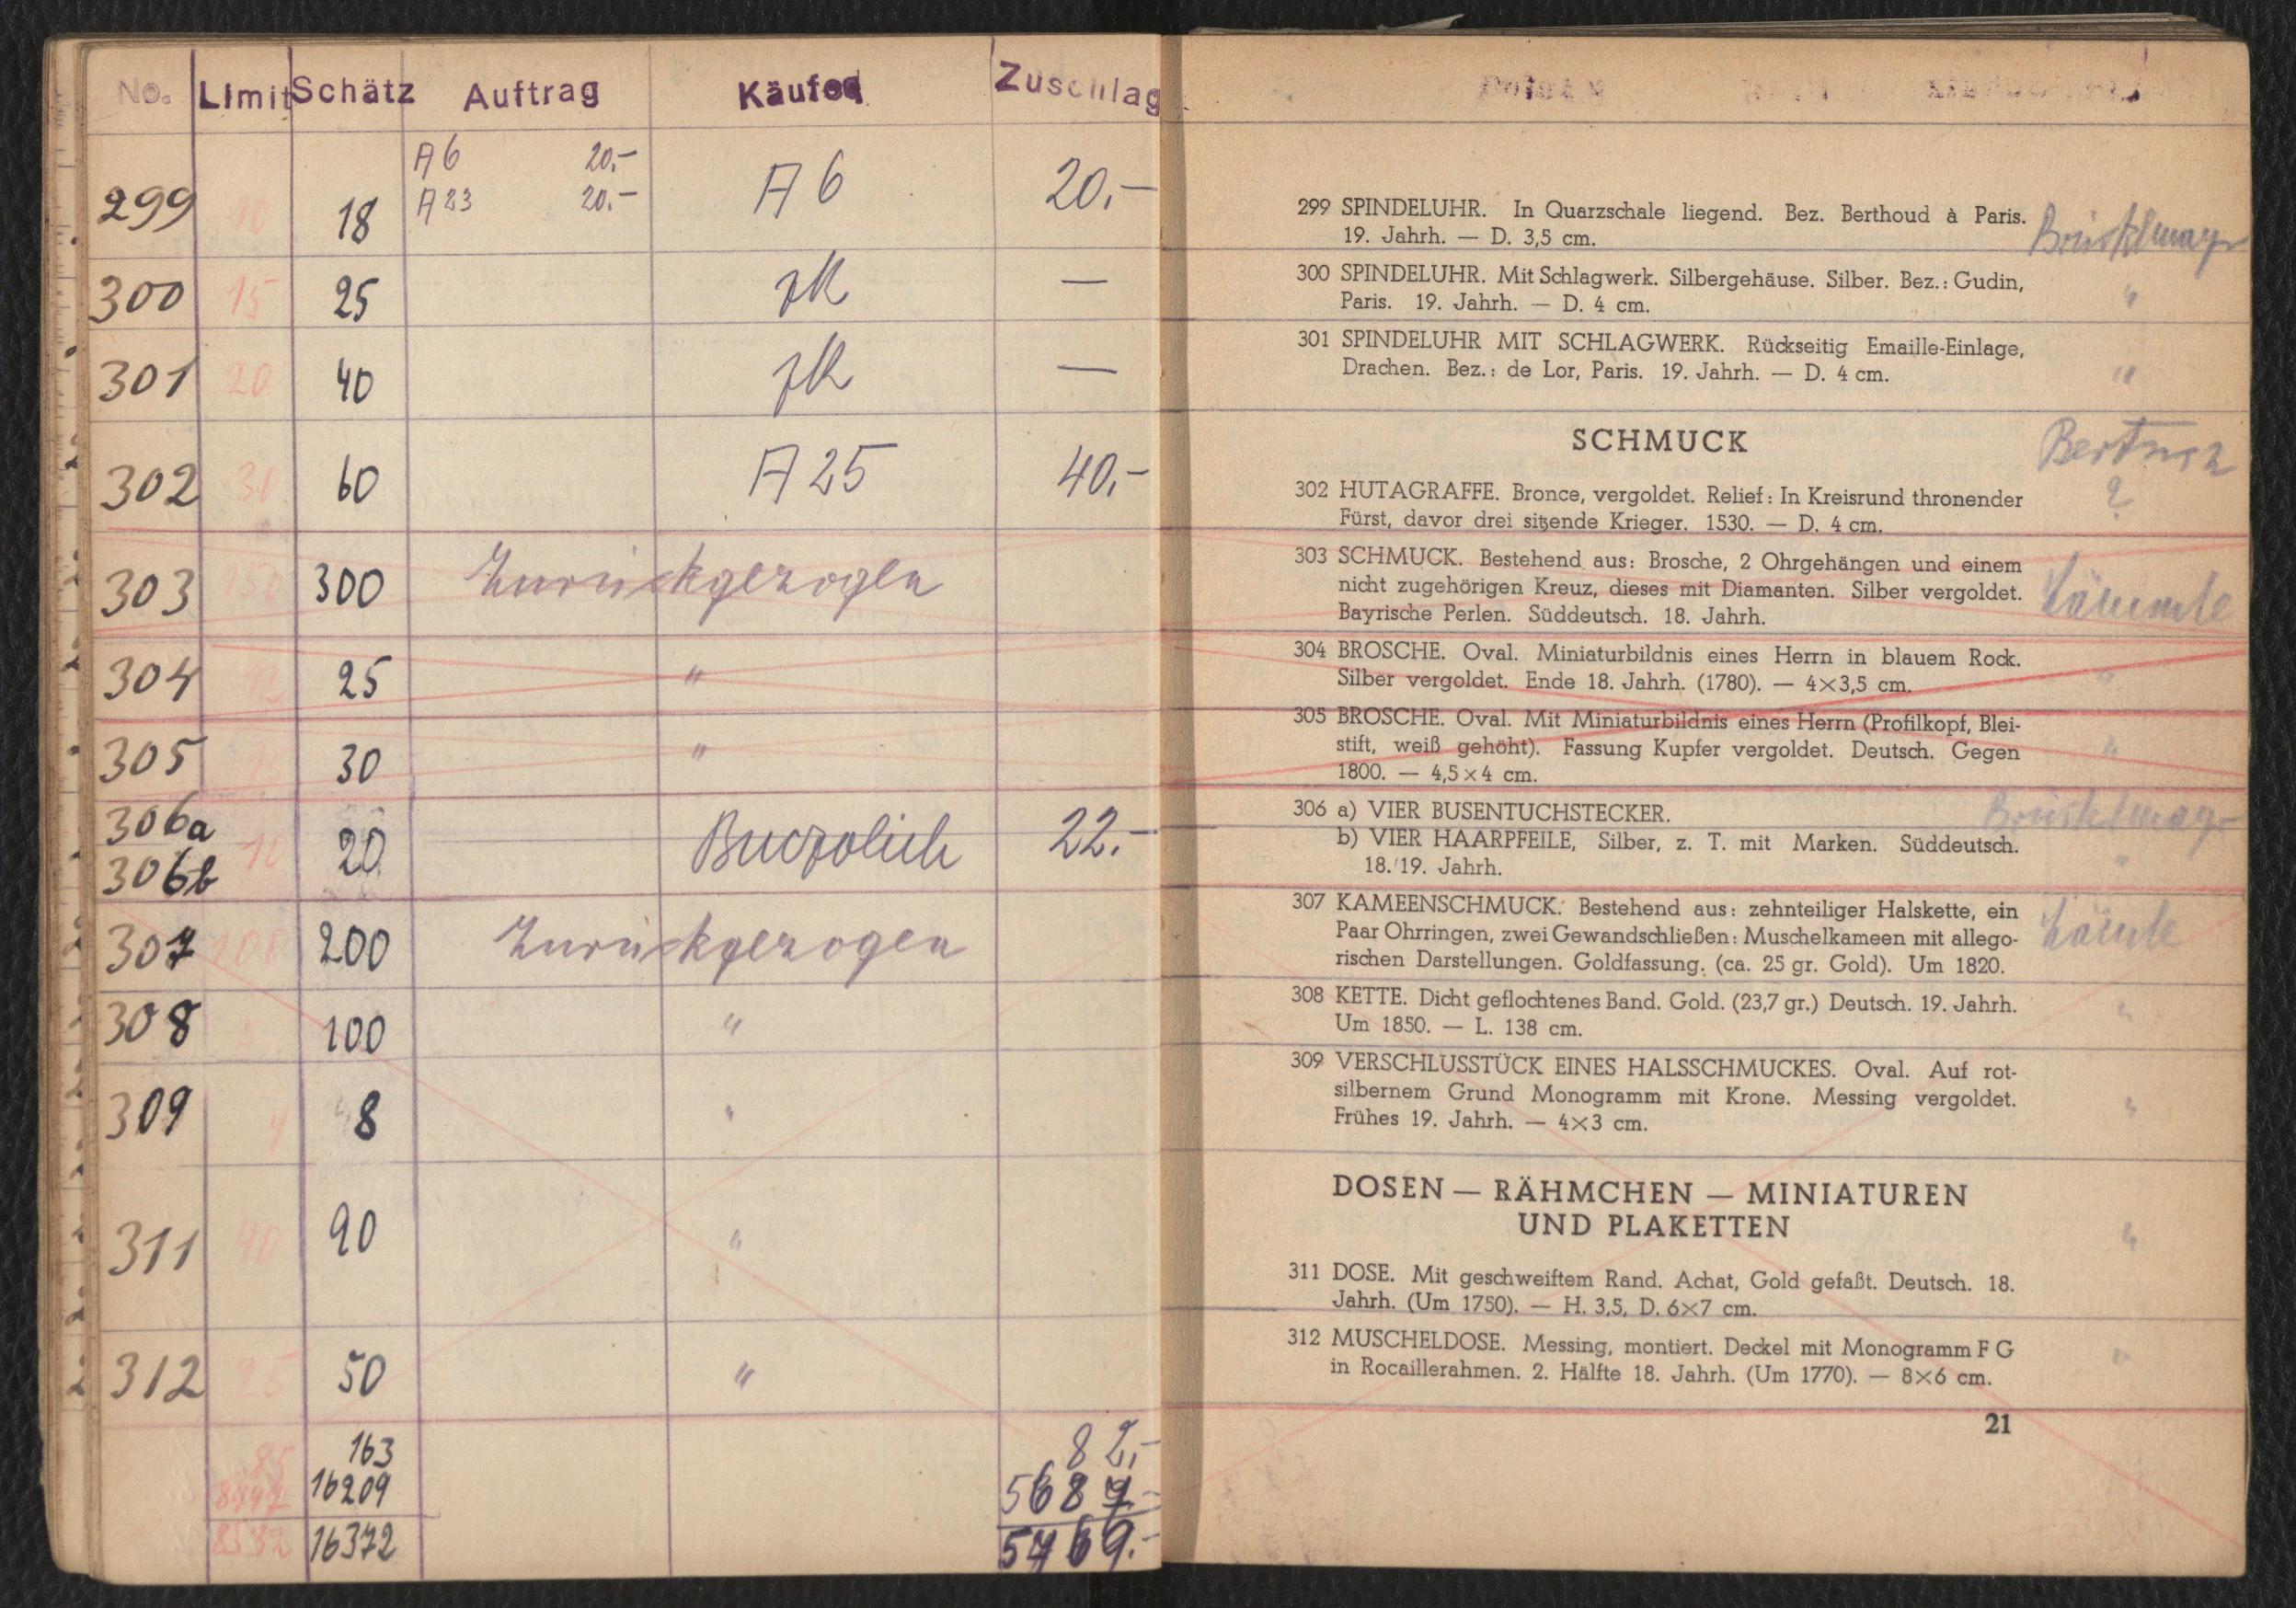 No. Limit Schätz Auftrag Käufer Zuschlag
A 6 20.-
299 10 18 A 23 20.- A 6 20.-
300 15 25 zk —
301 20 40 zk —
302 30 60 A 25 40.-
303 150 300 Zurückgezogen
304 12 25 "
305 30 "
306a
306b 10 20 22.-
307 100 200 Zurückgezogen
308 100 "
309 4 8 "
311 40 90 "
312 25 50 "
85 163 82.-
8447 16209 5687.-
8532 16372 5769.-
299 SPINDELUHR. In Quarzschale liegend. Bez. Berthoud à Paris. Brüsklmayr
19. Jahrh. — D. 3,5 cm.
300 SPINDELUHR. Mit Schlagwerk. Silbergehäuse. Silber. Bez.: Gudin, "
Paris. 19. Jahrh. — D. 4 cm.
301 SPINDELUHR MIT SCHLAGWERK. Rückseitig Emaille-Einlage, "
Drachen. Bez.: de Lor, Paris. 19. Jahrh. — D. 4 cm.
SCHMUCK
302 HUTAGRAFFE. Bronce, vergoldet. Relief: In Kreisrund thronender ?
Fürst, davor drei sitzende Krieger. 1530. — D. 4 cm.
303 SCHMUCK. Bestehend aus: Brosche, 2 Ohrgehängen und einem
nicht zugehörigen Kreuz, dieses mit Diamanten. Silber vergoldet. Lämmle
Bayrische Perlen. Süddeutsch. 18. Jahrh.
304 BROSCHE. Oval. Miniaturbildnis eines Herrn in blauem Rock. "
Silber vergoldet. Ende 18. Jahrh. (1780). — 4×3,5 cm.
305 BROSCHE. Oval. Mit Miniaturbildnis eines Herrn (Profilkopf, Blei-
stift, weiß gehöht). Fassung Kupfer vergoldet. Deutsch. Gegen "
1800. — 4,5×4 cm.
306 a) VIER BUSENTUCHSTECKER. Brüsklmayr
b) VIER HAARPFEILE, Silber, z. T. mit Marken. Süddeutsch. "
18./19. Jahrh.
307 KAMEENSCHMUCK. Bestehend aus: zehnteiliger Halskette, ein
Paar Ohrringen, zwei Gewandschließen: Muschelkameen mit allego- Lämle
rischen Darstellungen. Goldfassung. (ca. 25 gr. Gold). Um 1820.
308 KETTE. Dicht geflochtenes Band. Gold. (23,7 gr.) Deutsch. 19. Jahrh. "
Um 1850. — L. 138 cm.
309 VERSCHLUSSTÜCK EINES HALSSCHMUCKES. Oval. Auf rot-
silbernem Grund Monogramm mit Krone. Messing vergoldet. "
Frühes 19. Jahrh. — 4×3 cm.
DOSEN — RÄHMCHEN — MINIATUREN
UND PLAKETTEN "
311 DOSE. Mit geschweiftem Rand. Achat, Gold gefaßt. Deutsch. 18.
Jahrh. (Um 1750). — H. 3,5, D. 6×7 cm.
312 MUSCHELDOSE. Messing, montiert. Deckel mit Monogramm F G "
in Rocaillerahmen. 2. Hälfte 18. Jahrh. (Um 1770). — 8×6 cm.
21